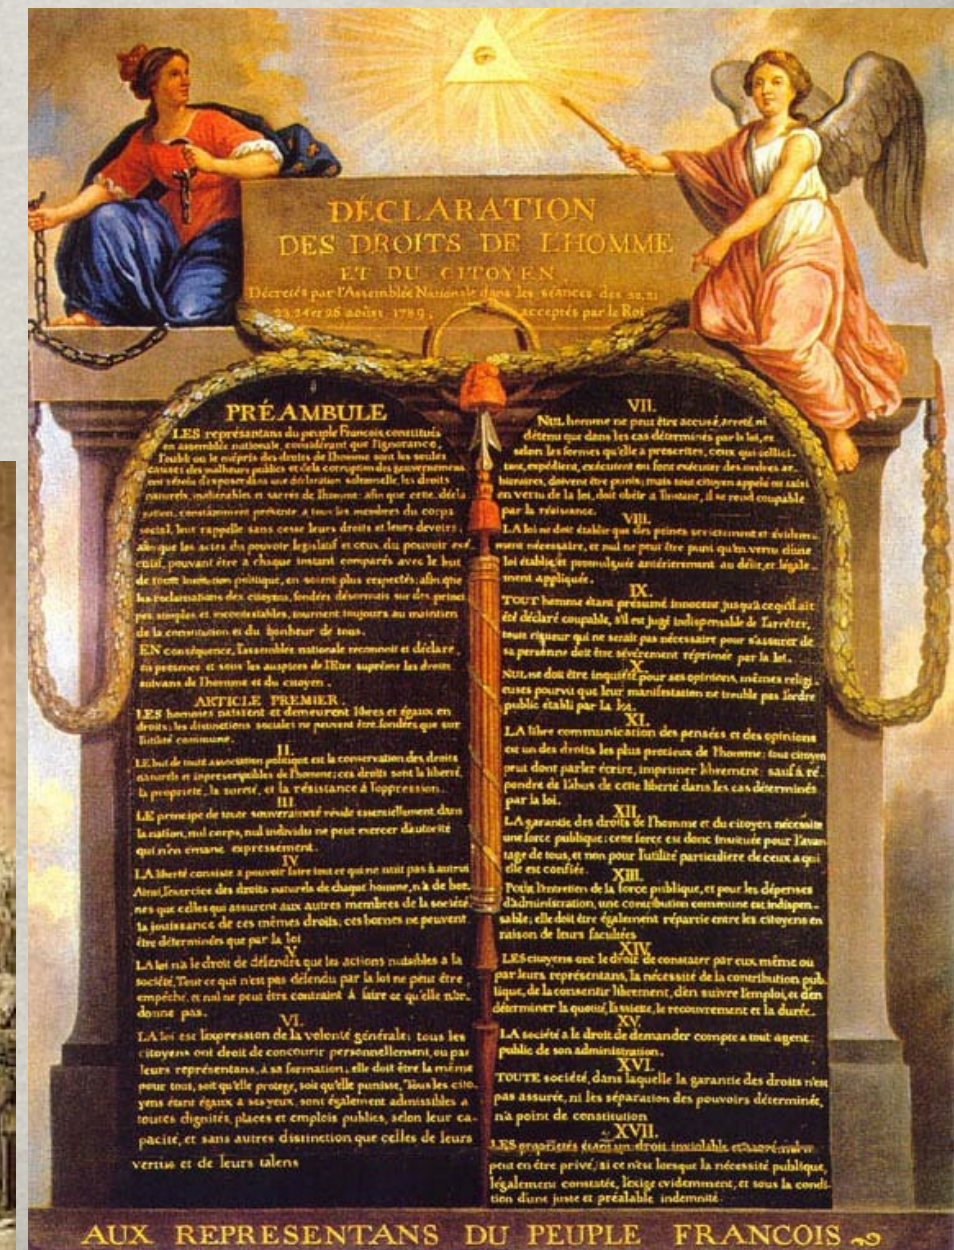 DÉCLARATION
DES DROITS DE L'HOMME
ET DU CITOYEN
Décretés par l'Assemblée Nationale dans les séances des 20, 21
23, 24 et 26 août 1789, acceptés par le Roi
PRÉAMBULE
LES représentans du peuple Francois, constitués
en assemblée nationale, considérant que l'ignorance,
l'oubli ou le mépris des droits de l'homme sont les seules
causes des malheurs publics et de la corruption des gouvernemens
ont résolu d'exposer dans une déclaration solemnelle, les droits
naturels, inaliénables et sacrés de l'homme; afin que cette décla
ration, constamment présente a tous les membres du corps
social, leur rappelle sans cesse leurs droits et leurs devoirs,
afin que les actes du pouvoir legislatif et ceux du pouvoir exé
cutif, pouvant être a chaque instant comparés avec le but
de toute institution politique, en soient plus respectés; afin que
les reclamations des citoyens, fondées désormais sur des princi
pes simples et incontestables, tournent toujours au maintien
de la constitution et du bonheur de tous.
EN conséquence, l'assemblée nationale reconnoit et déclare,
en presence et sous les auspices de l'Etre suprême les droits
suivans de l'homme et du citoyen.
ARTICLE PREMIER.
LES hommes naissent et demeurent libres et égaux en
droits, les distinctions sociales ne peuvent être fondées que sur
l'utilité commune.
II.
LE but de toute association politique est la conservation des droits
naturels et inprescriptibles de l'homme; ces droits sont la liberté,
la propriété, la sureté, et la résistance à l'oppression.
III
LE principe de toute souveraineté réside essentiellement dans
la nation, nul corps, nul individu ne peut exercer d'autorité
qui n'en émane expressement.
IV
LA liberté consiste a pouvoir faire tout ce qui ne nuit pas à autrui
Ainsi, l'exercice des droits naturels de chaque homme, n'a de bor
nes que celles qui assurent aux autres membres de la société
la jouissance de ces mêmes droits; ces bornes ne peuvent
être déterminées que par la loi
V
LA loi n'a le droit de défendre que les actions nuisibles a la
société. Tout ce qui n'est pas défendu par la loi ne peut être
empêché, et nul ne peut être contraint à faire ce qu'elle n'or-
donne pas.
VI.
LA loi est l'expression de la volonté générale; tous les
citoyens ont droit de concourir personnellement, ou par
leurs représentans, à sa formation; elle doit être la même
pour tous, soit qu'elle protege, soit qu'elle punisse, Tous les cito-
yens étant égaux à ses yeux, sont également admissibles a
toutes dignités, places et emplois publics, selon leur ca-
pacité, et sans autres distinction que celles de leurs
vertus et de leurs talens
VII.
NUL homme ne peut être accusé, arreté ni
détenu que dans les cas déterminés par la loi, et
selon les formes qu'elle à prescrites, ceux qui sollici-
tent, expédient, exécutent ou font exécuter des ordres ar-
bitraires, doivent être punis; mais tout citoyen appelé ou saisi
en vertu de la loi, doit obéir a l'instant, il se rend coupable
par la résistance.
VIII.
LA loi ne doit établir que des peines strictement et évidem-
ment nécessaire, et nul ne peut être puni qu'en vertu d'une
loi établie et promulguée antérierement au délit, et légale-
ment appliquée.
IX.
TOUT homme étant présumé innocent jusqu'a ce qu'il ait
été déclaré coupable, s'il est jugé indispensable de l'arrêter,
toute rigueur qui ne serait pas nécessaire pour s'assurer de
sa personne doit être sévérement réprimée par la loi.
X.
NUL ne doit être inquiété pour ses opinions, mêmes religi
euses pourvu que leur manifestation ne trouble pas l'ordre
public établi par la loi.
XI.
LA libre communication des pensées et des opinions
est un des droits les plus precieux de l'homme; tout citoyen
peut dont parler écrire, imprimer librement: sauf à ré
pondre de l'abus de cette liberté dans les cas déterminés
par la loi.
XII.
LA garantie des droits de l'homme et du citoyen nécessite
une force publique; cette force est donc instituée pour l'avan
tage de tous, et non pour l'utilité particulière de ceux a qui
elle est confiée.
XIII.
Pour l'entretien de la force publique, et pour les dépenses
d'administration, une contribution commune est indispen-
sable; elle doit être également répartie entre les citoyens en
raison de leurs facultées
XIV.
LES citoyens ont le droit de constater par eux même ou
par leurs représentans, la nécessité de la contribution pub-
lique, de la consentir librement, d'en suivre l'emploi, et d'en
déterminer la quotité, l'assiete, le recouvrement et la durée.
XV.
LA société a le droit de demander compte a tout agent
public de son administration.
XVI.
TOUTE société, dans laquelle la garantie des droits n'est
pas assurée, ni les séparation des pouvoirs déterminée,
n'a point de constitution
XVII.
LES propriétés étant un droit inviolable et sacré, nul ne
peut en être privé, si ce n'est lorsque la nécessité publique,
légalement constatée, l'exige evidemment, et sous la condi-
tion d'une juste et préalable indemnité
AUX REPRESENTANS DU PEUPLE FRANCOIS